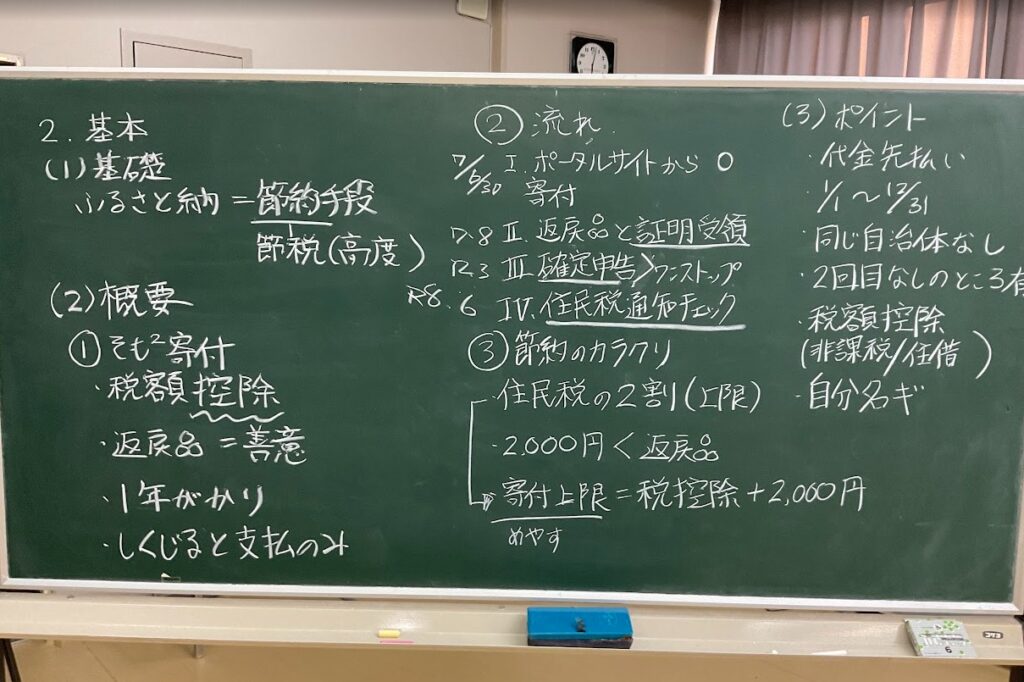 2. 基本
(1)基礎
ふるさと納 = 節約手段
節税(高度)
(2)概要
① そも² 寄付
・税額控除
・返戻品 = 善意
・1年がかり
・しくじると支払のみ
② 流れ
I. ポータルサイトから
寄付
R.8 II. 返戻品と証明受領
R.3 III. 確定申告>ワンストップ
R8.6 IV. 住民税通知チェック
③ 節約のカラクリ
・住民税の2割(上限)
・2.000円 < 返戻品
寄付上限 = 税控除 + 2,000円
めやす
(3) ポイント
・代金先払い
・1/1 〜 12/31
・同じ自治体なし
・2回目なしのところ有
・税額控除
(非課税/住借)
・自分名ギ